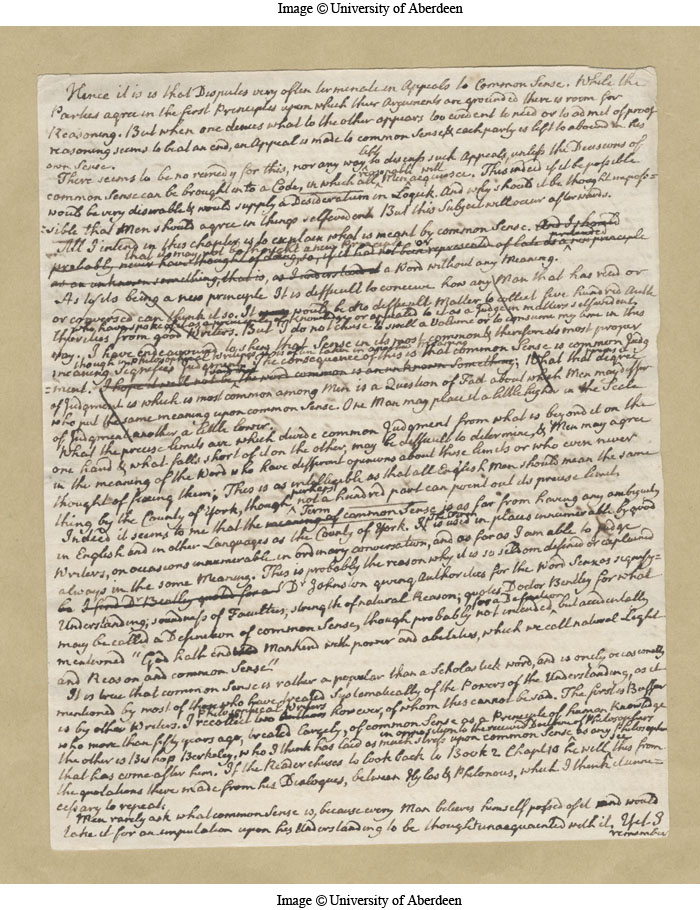 Image © University of Aberdeen
Hence it is is that Disputes very often terminate in Appeals to Common Sense. While the
Parties agree in the first Principles upon which their Arguments are grounded there is room for
Reasoning. But when one denies what to the other appears too evident to need or to admit of proof
reasoning seems to be at an end, an Appeal is made to common Sense & each party is left to abound in his
own Sense.
There seems to be no remedy for this, nor any way left to discuss such Appeals, unless the Decisions of
common Sense can be brought into a Code, in which all reasonable Men will acquiesce. This indeed if it be possible
would be very desirable & would supply a Desideratum in Logick. And why should it be thought unposs=
=sible that Men should agree in things selfevident But this Subject will occur afterwards.
All I intend in this chapter, is to explain what is meant by common Sense.
that it may not be thought a new Principle or
probably never have thought of doing so, if it had not been represented of late as a new principle
as an unknown something, that is, as I understand a Word without any Meaning.
As to its being a new principle It is difficult to conceive how any Man that has read or
or conversed can think it so. It would be no difficult Matter to collect five hundred Auth
who have spoke of it as a principle of knowledge or appealed to it as a Judge in matters selfevident
thorities from good Writers. But I do not chuse to swell a Volume or to consume my time in this
way. I have endeavoured to shew that Sense in its most common & therefore most proper
though in philosophical Writings it is often taken in another
meaning Signifies Judgment. The consequence of this is that common Sense is common Judg
=ment. I hope it will not be the word common is an unknown Something; What that degree
of Judgment is which is most common among Men is a Question of Fact about which Men may differ
who put the same meaning upon common Sense. One Man may place it a little higher in the Scale
of Judgment another a little lower.
What the precise limits are which divide common Judgment from what is beyond it on the
one hand & what falls short of it on the other, may be difficult to determine, & Men may agree
in the meaning of the Word who have different opinions about those limits or who even never
thought of fixing them. This is as intelligible as that all English Men should mean the same
thing by the County of York, though perhaps not a hundred part can point out its precise limits
Indeed it seems to me that the Term meaning of common Sense is as far from having any ambiguity
in English and in other Languages as the County of York. It is used in places innumerable by good
Writers, on occasions innumerable in ordinary conversation, and as far as I am able to Judge
always in the same Meaning. This is probably the reason why it is so seldom defined or explained
as I find Dr Beatty quoted for a Dr Johnson giving Authorities for the Word Sense as signify-
Understanding; soundness of Faculties, strength of natural Reason; quotes Doctor Bently for what
may be called a Definition of common Sense, though probably not intended for a Definition but accidentally
mentioned "God hath endowed Mankind with power and abilities, which we call natural Light
and Reason and common Sense."
It is true that common Sense is rather a popular than a Scholastick word, and is only occasionally
mentioned by most of those who have treated Systematically of the Powers of the Understanding, as it
is by other Writers. I recollect two Philosophical Writers however, of whom this cannot be said. The first is Buffier
who more than fifty years ago, treated largely, of common Sense as a Principle of human Knowledge
in opposition to the received Doctrine of Philosophers
the other is Bishop Berkeley, who I think has laid as much Stress upon common Sense as any Philosopher
that has come after him. If the Reader chuses to look back to Book 2 Chapt 10 he will see this from
the quotations there made from his Dialogues, between Hylas & Philonous, which I think unne=
cessary to repeat.
Men rarely ask what common Sense is, because every Man believes himself possed of it and would
take it for an imputation upon his Understanding to be thought unacquainted with it. Yet I
remember
Image © University of Aberdeen